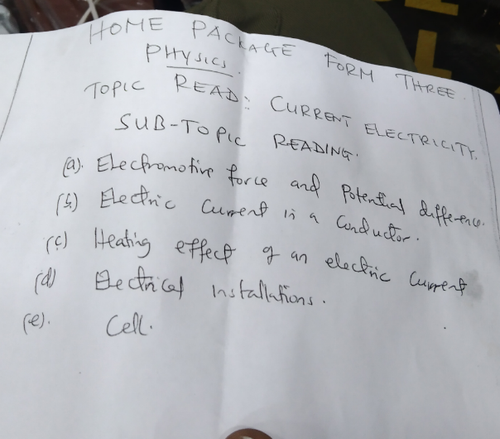 HOME PACKAGE FORM THREE.
PHYSICS.
TOPIC READ: CURRENT ELECTRICITY.
SUB-TOPIC READING.
(a). Electromotive force and Potential difference.
(b) Electric Current in a Conductor.
(c) Heating effect of an electric Current
(d) Electrical installations.
(e). Cell.